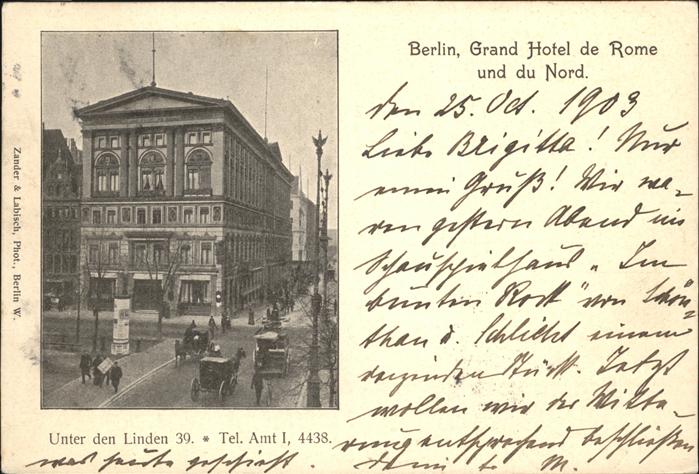 Berlin, Grand Hotel de Rome
und du Nord.
den 25. Oct. 1903
Liebe Brigitta! Nur
einen Gruß! Wir wa-
ren gestern Abend im
Schauspielhaus „Im
bunten Rock" von Schön-
than u. Schlicht einem
reizenden Stück. Jetzt
wollen wir der Witte-
rung entsprechend beschließen
was heute geschieht.
Unter den Linden 39. * Tel. Amt I, 4438.
Zander & Labisch, Phot., Berlin W.